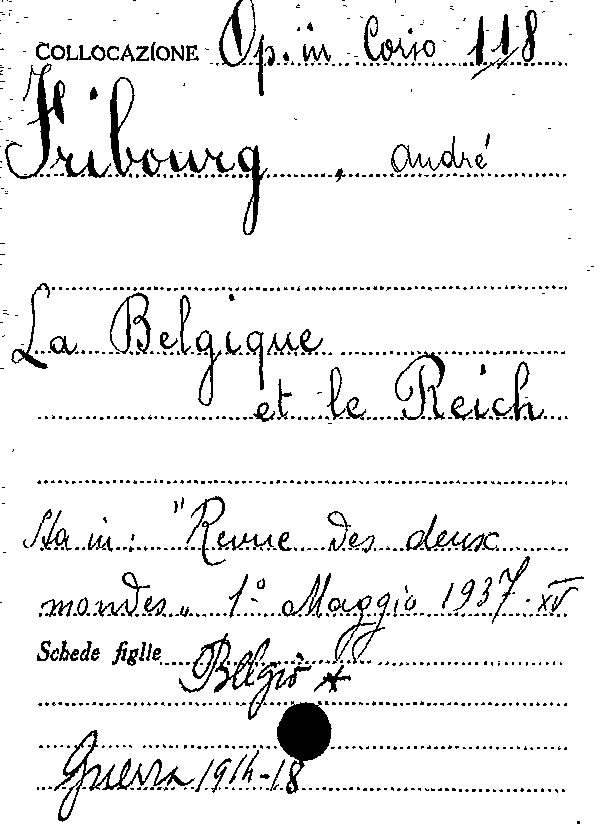 COLLOCAZIONE Op. in Corso 118
Fribourg, André
La Belgique
et le Reich
Sta in: "Revue des deux
mondes" 1º Maggio 1937. XV
Schede figlie Belgio *
Guerra 1914-18